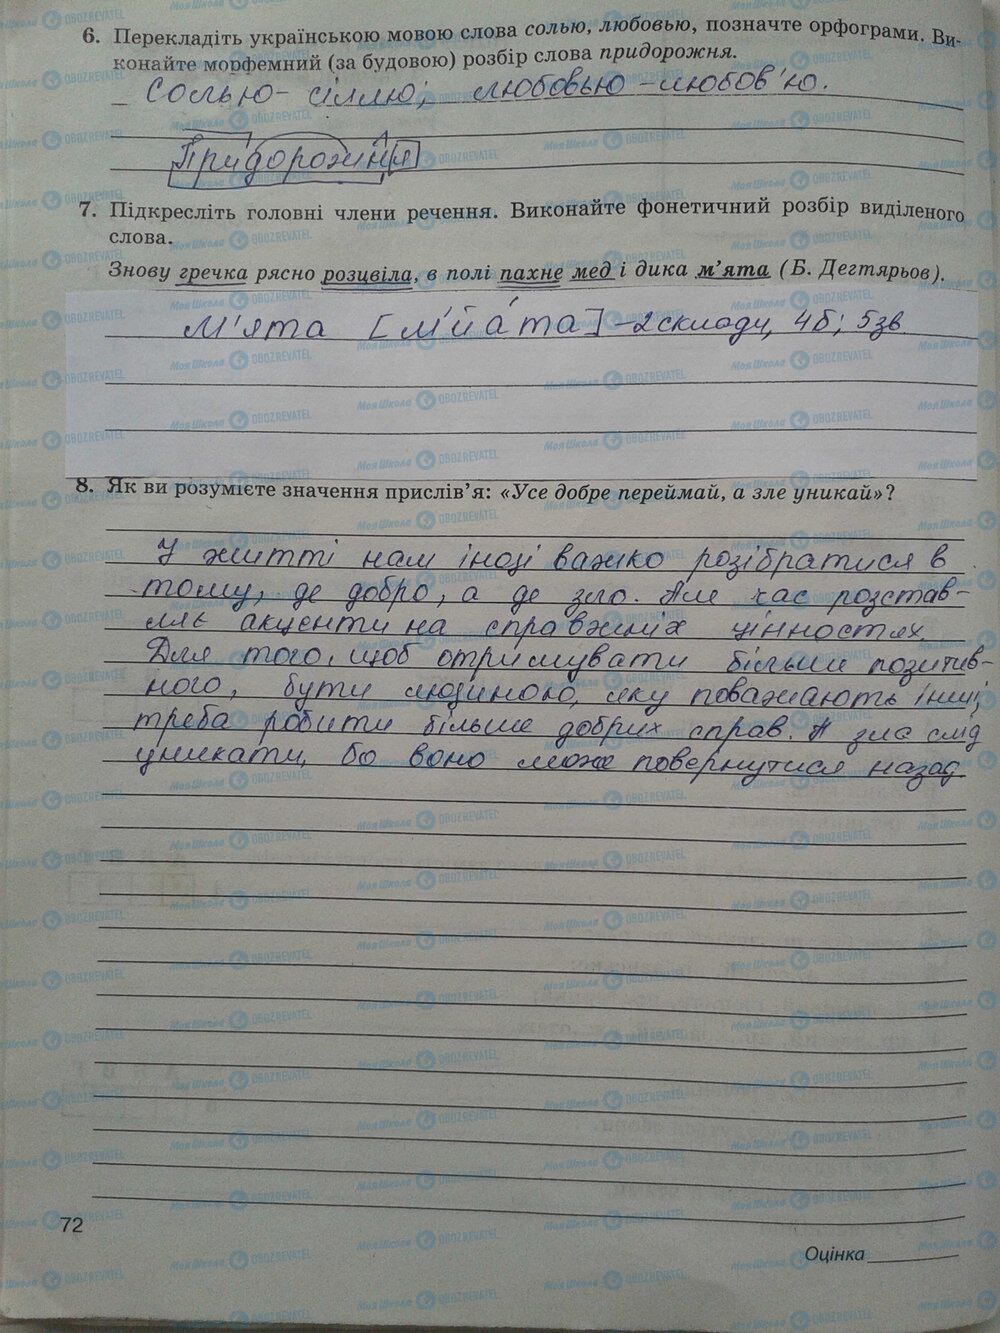 6. Перекладіть українською мовою слова солью, любовью, позначте орфограми. Ви-
конайте морфемний (за будовою) розбір слова придорожня.
Солью - сіллю, любовью - любов'ю.
Придорожня
7. Підкресліть головні члени речення. Виконайте фонетичний розбір виділеного
слова.
Знову гречка рясно розцвіла, в полі пахне мед і дика м'ята (Б. Дегтярьов).
М'ята [м'йа́та] - 2 склади, 4б; 5зв
8. Як ви розумієте значення прислів'я: «Усе добре переймай, а зле уникай»?
У житті нам іноді важко розібратися в
тому, де добро, а де зло. Але час розстав-
ляє акценти на справжніх цінностях.
Для того, щоб отримувати більш позитив-
ного, бути людиною, яку поважають інші,
треба робити більше добрих справ. А зле слід
уникати, бо воно може повернутися назад
72
Оцінка
Моя Школа OBOZREVATEL